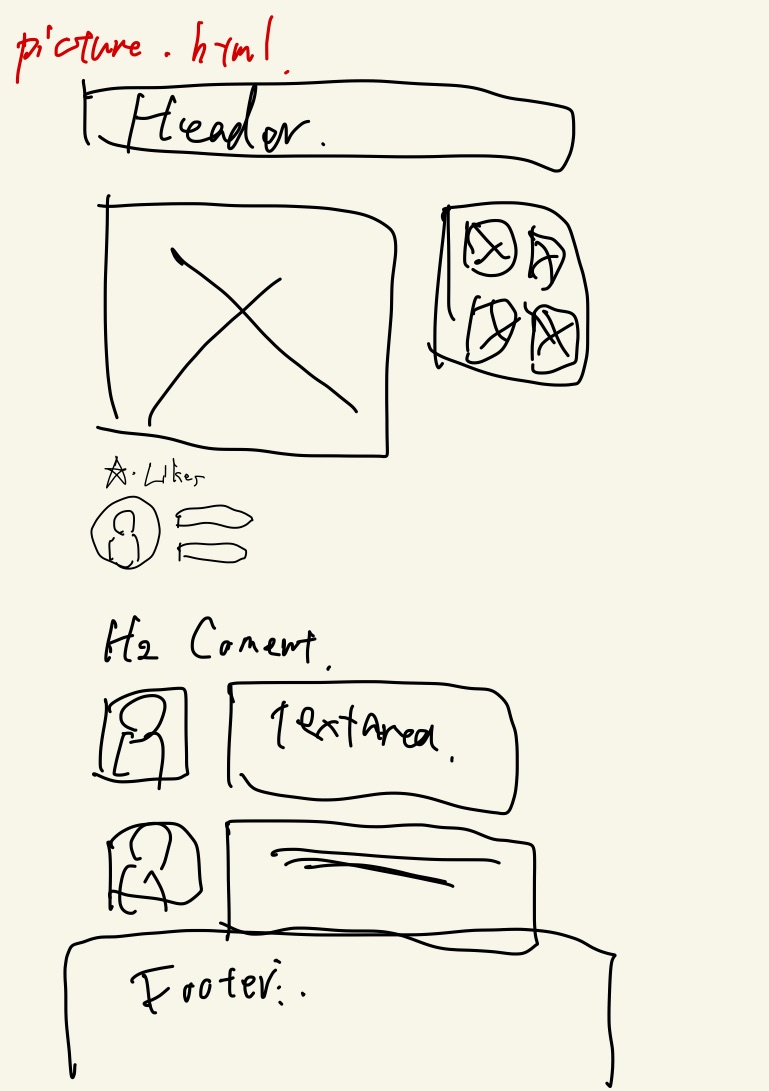 picture.html.
Header.
☆. Likes
H2 Coment.
Textarea.
Footer:.